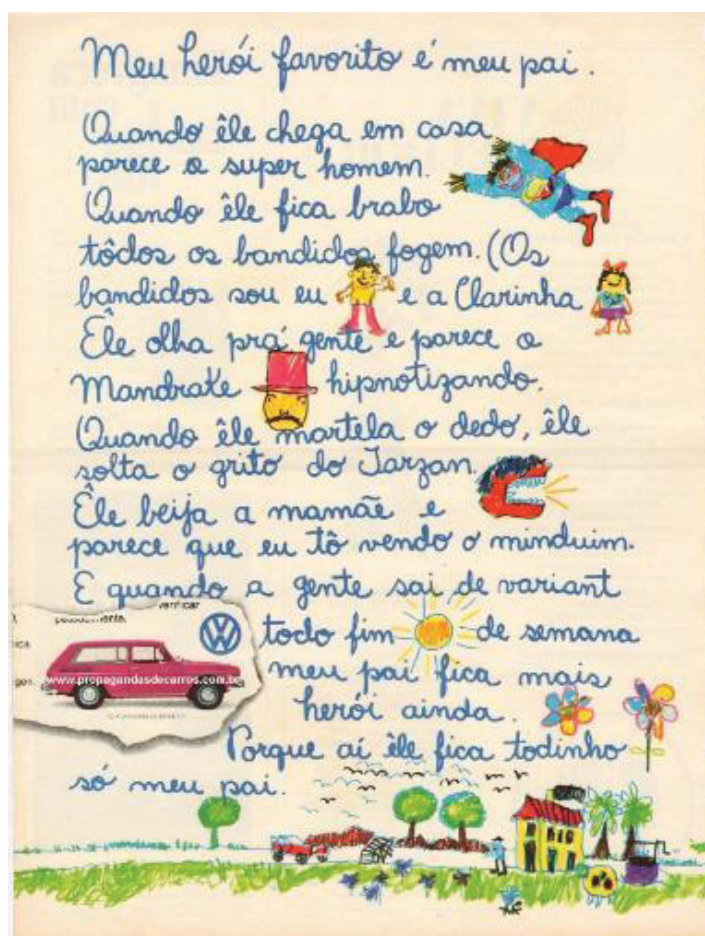 Meu herói favorito é meu pai.
Quando êle chega em casa
parece o super homem.
Quando êle fica brabo
tôdos os bandidos fogem. (Os
bandidos sou eu e a Clarinha
Êle olha prá gente e parece o
Mandrake hipnotizando.
Quando êle martela o dedo, êle
solta o grito do Tarzan.
Êle beija a mamãe e
parece que eu tô vendo o minduim.
E quando a gente sai de variant
verificar
VW todo fim de semana
www.propagandasdecarros.com.br
meu pai fica mais
herói ainda.
Porque aí êle fica todinho
só meu pai.